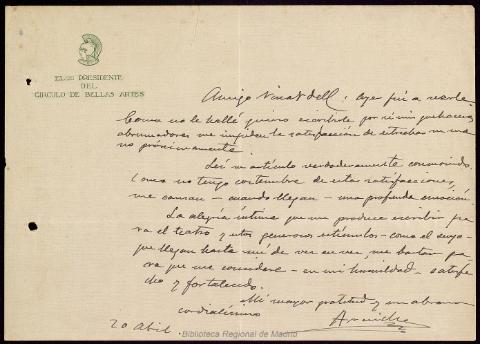 EL PRESIDENTE
DEL
CÍRCULO DE BELLAS ARTES
Amigo : Ayer fuí a verle.
Como no le hallé quiero escribirle por si mis quehaceres
abrumadores me impiden la satisfacción de estrechar su ma
no próximamente.
Leí su artículo verdaderamente conmovido.
Como no tengo costumbre de estas satisfacciones,
me causan - cuando llegan - una profunda emoción.
La alegría íntima que me produce escribir pa
ra el teatro y estos generosos estímulos - como el suyo -
que llegan hasta mí de vez en vez, me bastan pa
ra que me considere - en mi humildad - satisfe
cho y fortalecido.
Mi mayor gratitud y un abrazo
cordialísimo
Arniches
20 Abril -
Biblioteca Regional de Madrid